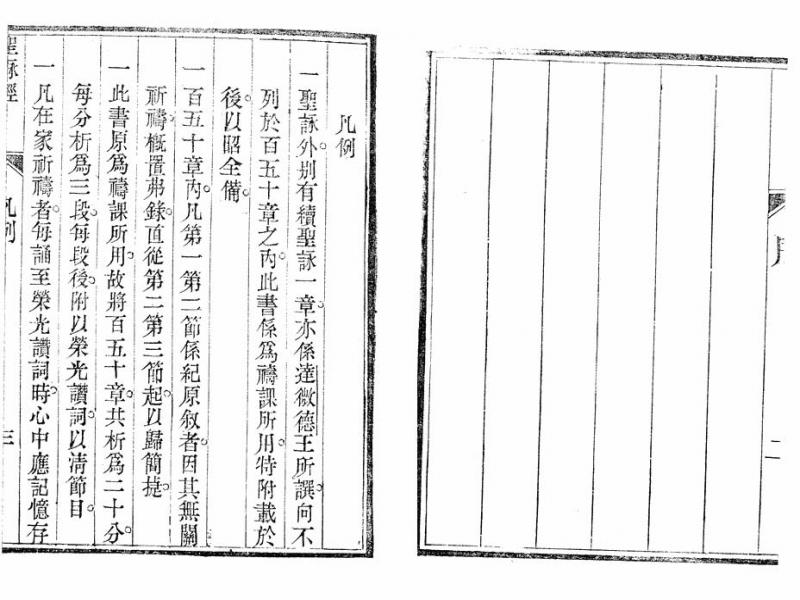 二
凡例
一聖詠外。別有續聖詠一章。亦係達微德王所譔。向不
列於百五十章之內。此書係爲禱課所用。特附載於
後。以昭全備。
一百五十章內。凡第一第二節係紀原敘者。因其無關
祈禱。槪置弗錄。直從第二第三節起。以歸簡捷。
一此書原爲禱課所用。故將百五十章。共析爲二十分。
每分析爲三段。每段後。附以榮光讚詞。以清節目。
一凡在家祈禱者。每誦至榮光讚詞時。心中應記憶存
聖詠經
凡例
三